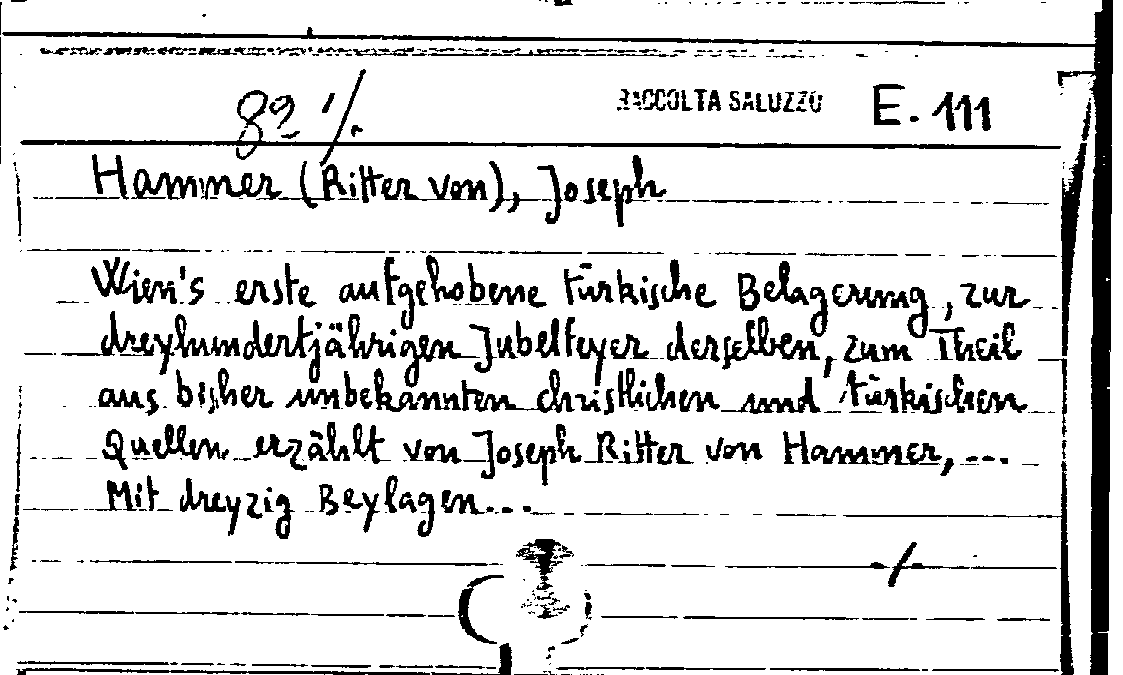 8º 1/. RACCOLTA SALUZZO E. 111
Hammer (Ritter von), Joseph
Wien's erste aufgehobene türkische Belagerung, zur
dreyhundertjährigen Jubelfeyer derselben, zum Theil
aus bisher unbekannten christlichen und türkischen
Quellen erzählt von Joseph Ritter von Hammer, ...
Mit dreyzig Beylagen...
-/-